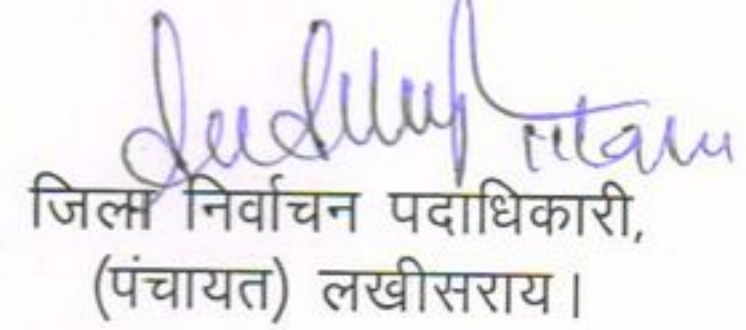 जिला निर्वाचन पदाधिकारी,
(पंचायत) लखीसराय।